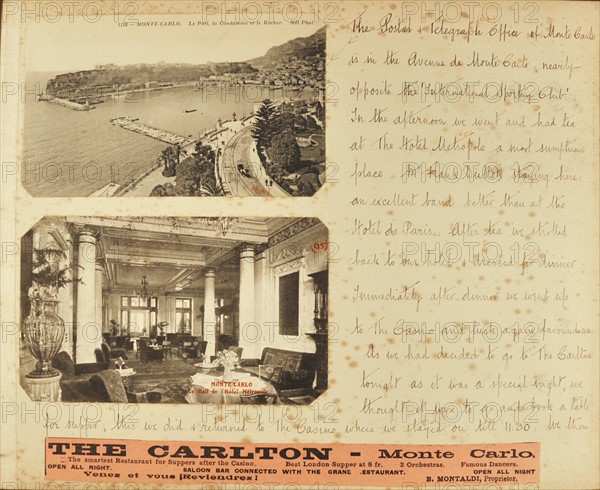 1128 – MONTE-CARLO. Le Port, la Condamine et le Rocher. ND Phot
MONTE-CARLO
Le Hall de l'Hôtel-Métropole
The Postal & Telegraph Office of Monte Carlo
is in the Avenue de Monte Carlo, nearly
opposite the "International Sporting Club"
In the afternoon we went and had tea
at The Hotel Metropole a most sumptuous
place. staying here:
an excellent band better than at the
Hotel de Paris. After tea we strolled
back to our Hotel & dressed for dinner
Immediately after dinner we went up
to the Casino and luck again favoured us
As we had decided to go to The Carlton
tonight as it was a special night, we
thought it wise to go and book a table
for supper, this we did & returned to the Casino where we stayed on till 11.30. We then
THE CARLTON - Monte Carlo.
The smartest Restaurant for Suppers after the Casino, Best London Supper at 8 fr. 2 Orchestras. Famous Dancers.
OPEN ALL NIGHT. SALOON BAR CONNECTED WITH THE GRAND RESTAURANT. OPEN ALL NIGHT
Venez et vous [Reviendrez! B. MONTALDI, Proprietor.